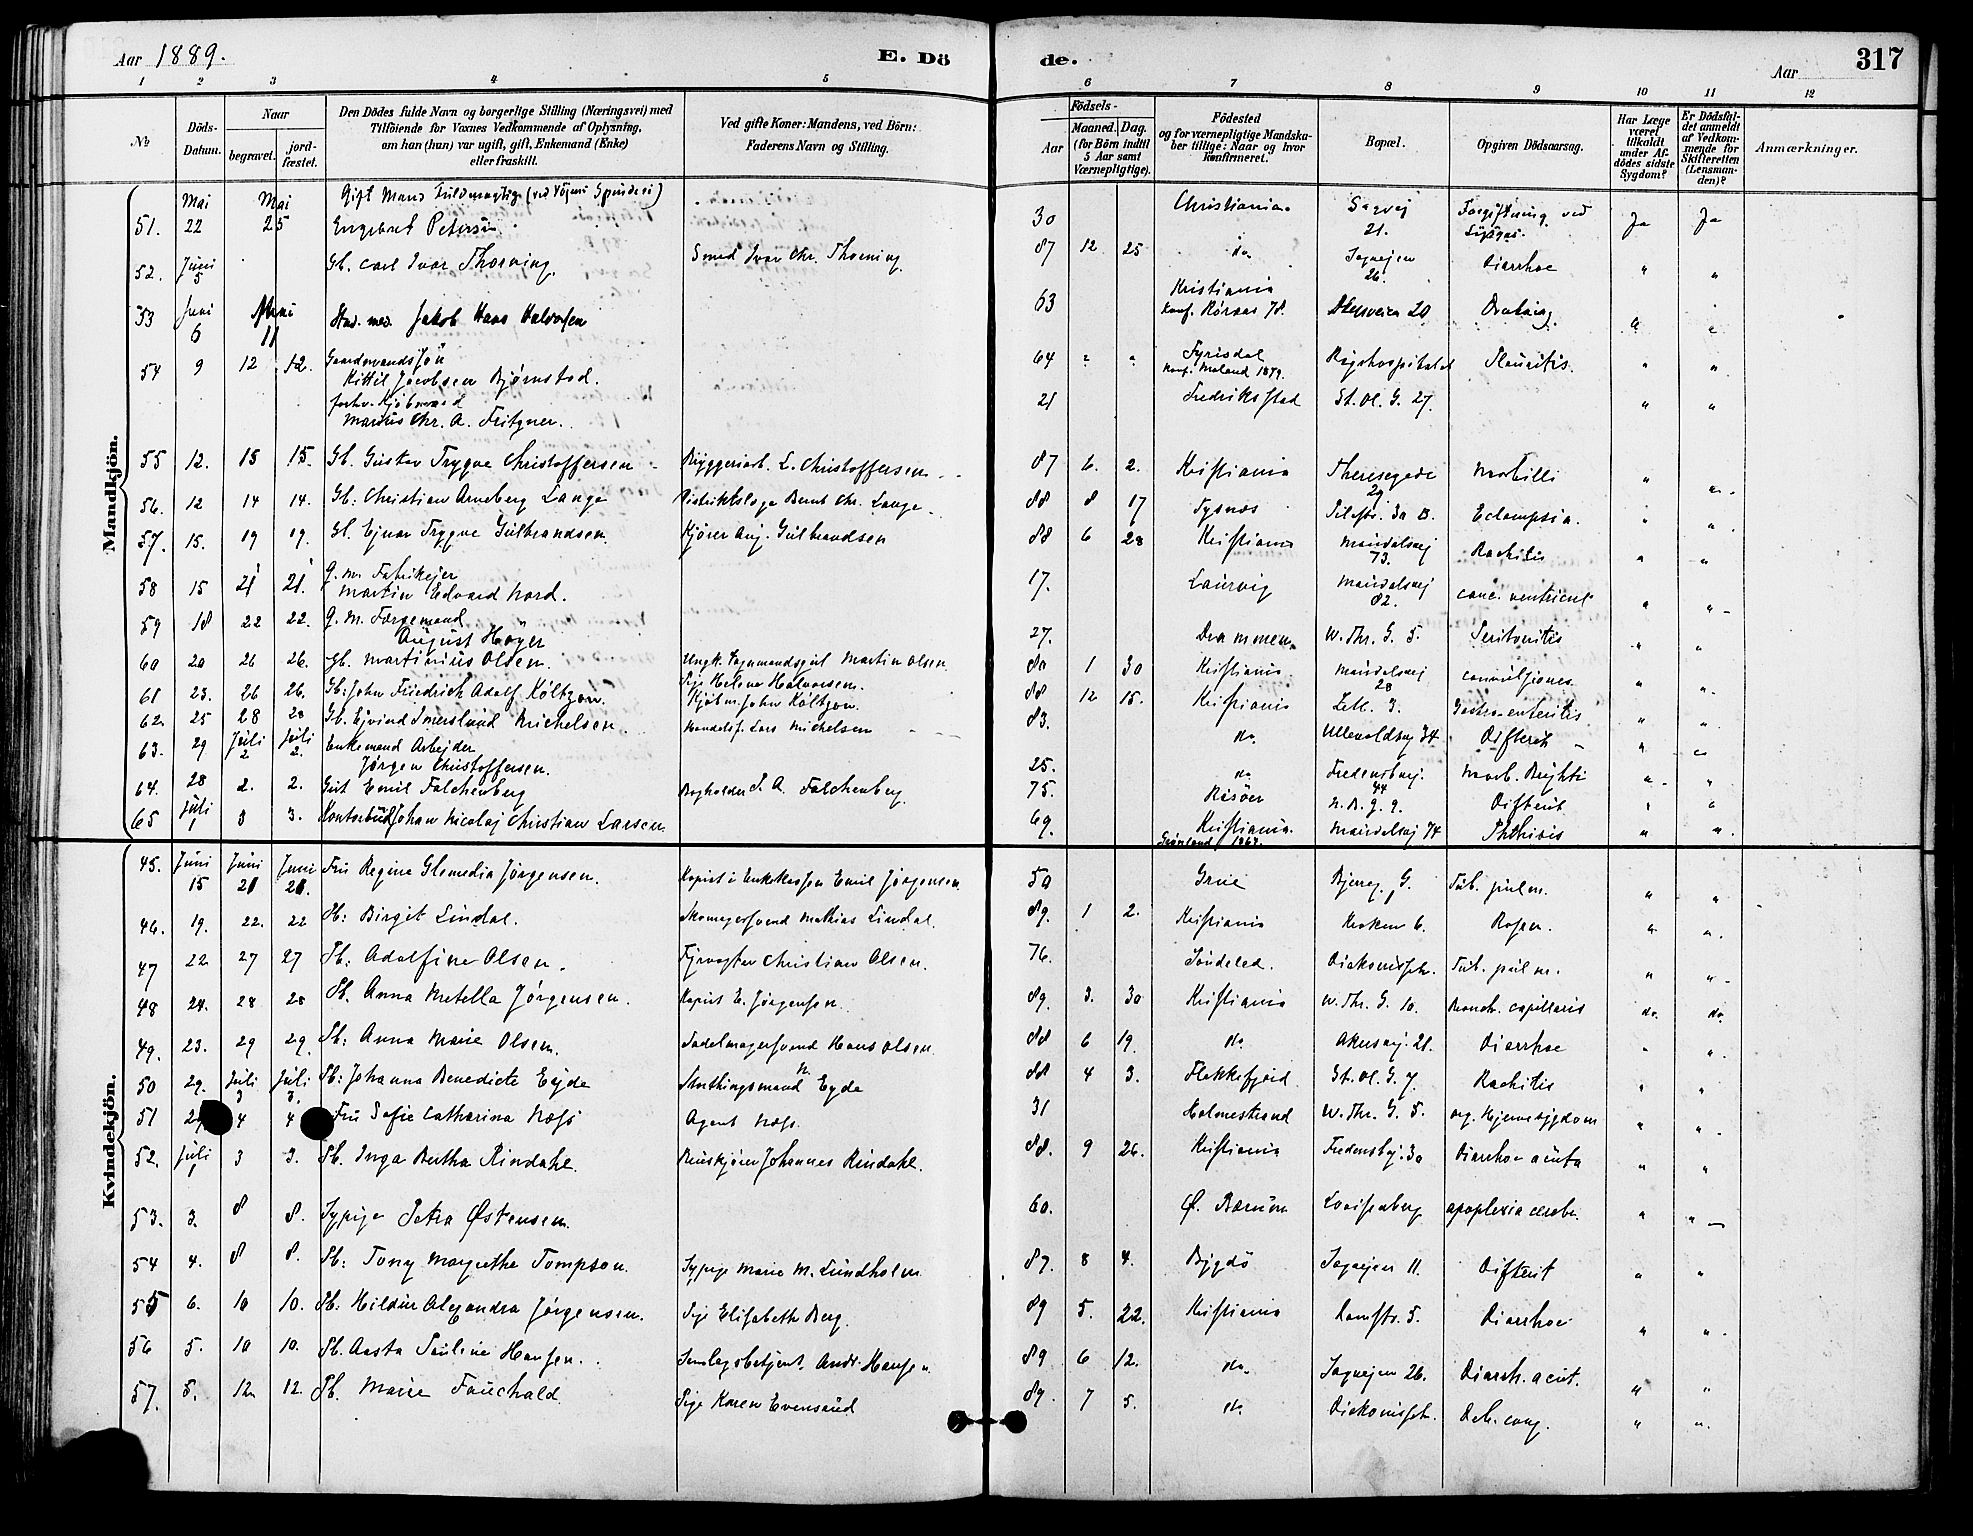 Aar 1889. E. Dö de. Aar 317
1 2 3 4 5 6 7 8 9 10 11 12
№ Döds-Datum. Naar begravet. jord-fæstet. Den Dödes fulde Navn og borgerlige Stilling (Næringsvei) med Tilföiende for Voxnes Vedkommende af Oplysning, om han (hun) var ugift, gift, Enkemand (Enke) eller fraskilt. Ved gifte Koner: Mandens, ved Börn: Faderens Navn og Stilling. Födsels- Aar Maaned. Dag. (for Börn indtil 5 Aar samt Værnepligtige). Födested og for værnepligtige Mandskaber tillige: Naar og hvor konfirmeret. Bopæl. Opgiven Dödsaarsag. Har Læge været tilkaldt under Afdödes sidste Sygdom? Er Dödsfaldet anmeldt af Vedkommende for Skifteretten (Lensmanden)? Anmærkninger.
Mandkjön.
51. Mai 22 Mai 25 Gift Mand Fuldmægtig (ved Vöyens Spinderi) Engebret Petersen 30 Christiania Sagvej 21. Forgiftning ved Lysgas. Ja Ja
52. Juni 5 Gb. Carl Ivar Thorning. Smed Ivar Chr. Thorning. 87 12 25 do. Sagvejen 26. Diarrhoe " "
53 Juni 6 Juni 11 Stud. med. Jakob Hans Halvorsen 63 Kristiania Konf. Röraas 78. Akersveien 20 Drukning. " "
54 9 12 12. Gaardmands Sön Kittil Jacobsen Bjørnstad. 64 " " Fyrisdal Konf. Moland 1879. Rigshospitalet Pleuritis. " "
forhv. Kjöbmand Marius Chr. A. Fritzner. 21 Fredriksstad St. Ol. G. 27. " "
55 12. 15 15. Gb. Gustav Trygve Christoffersen Bryggeriarb. L. Christoffersen 87 6. 2. Kristiania Theresegade 29 Morbilli " "
56. 12 14 14. Gb. Christian Arneberg Lange Distriktslæge Bernt Chr. Lange 88 8 17 Tysnæs Pilestr. 30 B. Eclampsia. " "
57. 15. 19 19. Gb. Ejnar Trygve Gulbrandsen. Kjörer Aug. Gulbrandsen 88 6 28 Kristiania Maridalsvej 73. Rachitis " "
58 15 21 21. G. m. Fabrikejer Martin Edvard Nord. 17. Laurvig Maridalsvej 82. canc. ventricul " "
59 18 22 22. G. m. Færgemand August Høyer 27. Drammen W. Thr. G. 5. Peritonitis " "
60 20 26 26. Gb. Martinius Olsen. Ungk. Martin Olsen. Pige Helene Halvorsen. 89 1 30 Kristiania Maridalsvej 28 convulsiones " "
61 23. 26 26. Gb: John Friedrich Adolf Költzow. Kjöbm. John Költzow. 88 12 15. Kristiania Zetl. 3. Gastroenteritis " "
62. 25 28 28 Gb. Ejvind Imerslund Michelsen Handelsf. Lars Michelsen 83. do. Ullevoldsvej 34 Difterit " "
63. 29 Juli 2 Juli 2. Enkemand Arbejder Jørgen Christoffersen. 25. do Fredensbvej. 44 Morb. Brighti " "
64. 28 2. 2. Gut Emil Falchenberg Bogholder S. A. Falchenberg. 75. Risöer N. B. g. 9. Difterit " "
65 Juli 1 3 3. Kontorbud Johan Nicolaj Christian Larsen 69. Kristiania. Grønland 1869. Maridalsvej 74 Phthisis " "
Kvindekjön.
45. Juni 15 Juni 21 Juni 21. Fru Regine Glemedia Jørgensen. Kopist i Enkekassen Emil Jørgensen 50 Grue Bjerreg. G. Tub. pulm. " "
46. 19. 22. 22 Pb: Birgit Lindal. Skomagersvend Mathias Lindal. 89. 1 2. Kristiania Kroken 6. Rosen. " "
47 22 27 27 Pb: Adolfine Olsen. Fyrvogter Christian Olsen. 76. Söndeled. Diakonissh. Tub. pulm. " "
48 24. 28 28 Pb. Anna Metella Jørgensen. Kopist E. Jørgensen. 89. 3. 30 Kristiania W. Thr. G. 10. Bronch. capillaris do. do.
49. 23. 29 29. Pb: Anna Marie Olsen. Sadelmagersvend Hans Olsen. 88 6 19. do Akersvej. 21. Diarrhoe " "
50 29. Juli 3 Juli 3. Pb: Johanna Benedicte Eyde Storthingsmand Eyde 88 4 3. Flekkefjord. St. Ol. G. 7. Rachitis " "
51 29 4 4 Fru Sofie Catharina Næss Agent Næss. 31 Holmestrand W. Thr. G. 5. org. Hjernesygdom " "
52. Juli 1 3 3. Pb. Inga Bertha Rindahl. Johannes Rindahl. 88. 9 26. Kristiania Fredensbvej. 30 Diarrhoe acuta " "
53. 3. 8 8. Sypige Petra Østensen. 60. Ø. Bærum Lovisenberg apoplexia cerebri. " "
54 4. 8 8. Pb: Tony Margrethe Tompson. Sypige Marie M. Lundholm 87. 8 4. Bygdö Sagvejen 11. Difterit " "
55 6. 10 10. Pb: Hildur Alexandra Jørgensen. Pige Elisabeth Berg. 89 5. 22. Kristiania 5. Diarrhoe " "
56 5. 10 10. Pb. Aasta Pauline Hansen. Andr. Hansen. 89 6 12. do. Sagvejen 26. Diarrh. acut. " "
57. 5. 12 12. Pb. Marie Fauchald Pige Karen Evensrud 89. 7 5. do. Diakonissh. Deb. cong. " "